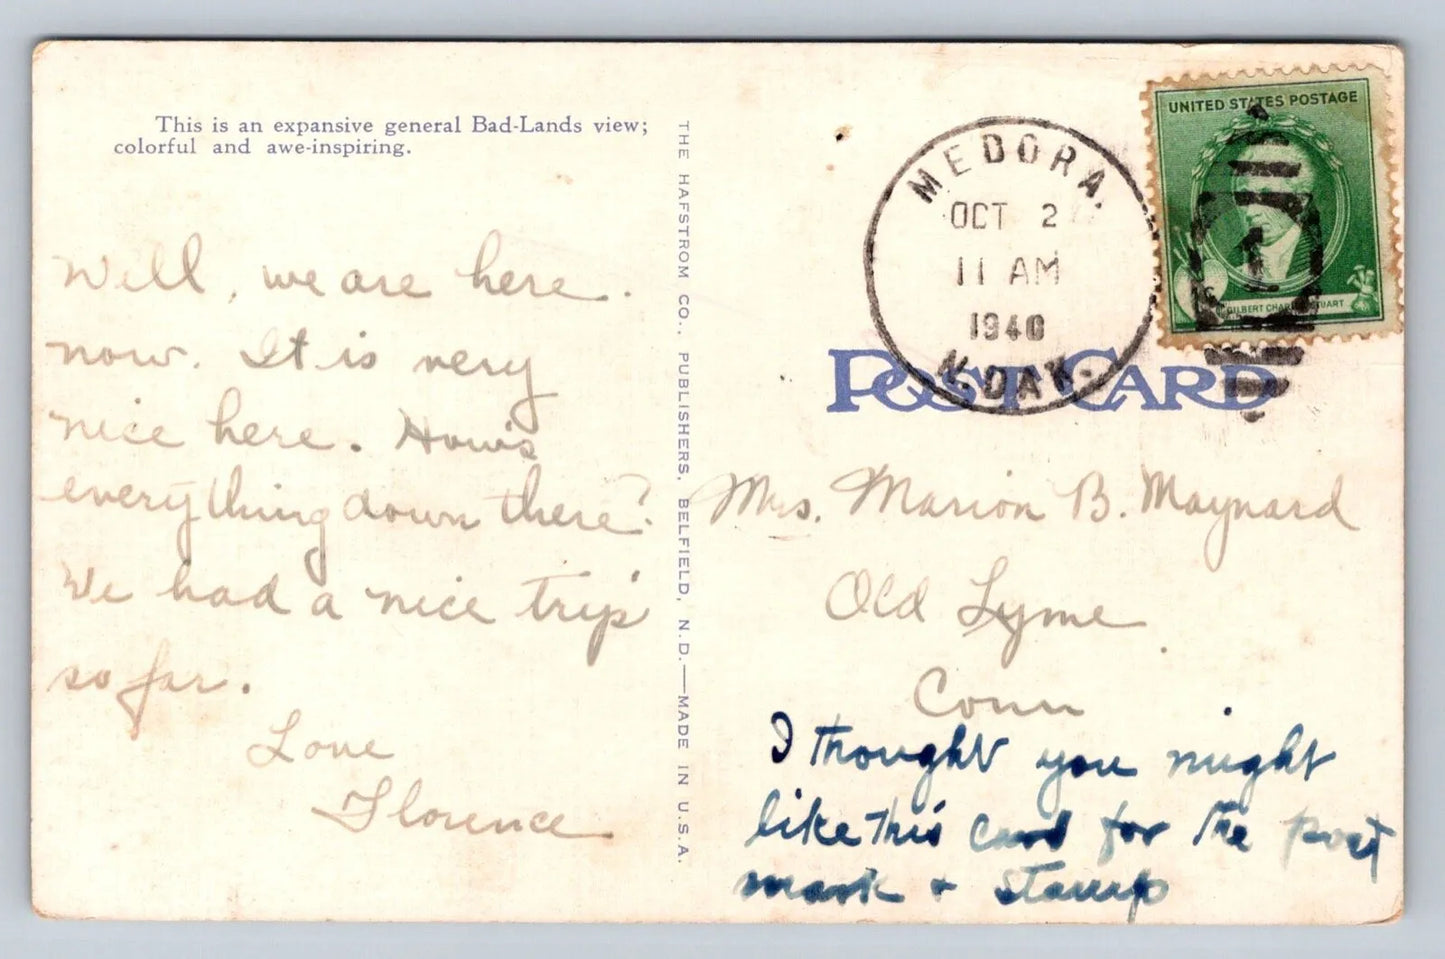 This is an expansive general Bad-Lands view;
colorful and awe-inspiring.
Well, we are here.
now. It is very
nice here. How's
everything down there?
We had a nice trip
so far.
Love
Florence
THE HAFSTROM CO., PUBLISHERS, BELFIELD, N.D.—MADE IN U.S.A.
MEDORA.
OCT 2
11 AM
1940
N. DAK.
UNITED STATES POSTAGE
1
GILBERT CHARLES STUART
POST CARD
Mrs. Marion B. Maynard
Old Lyme
Conn
I thought you might
like this card for the post
mark + stamp